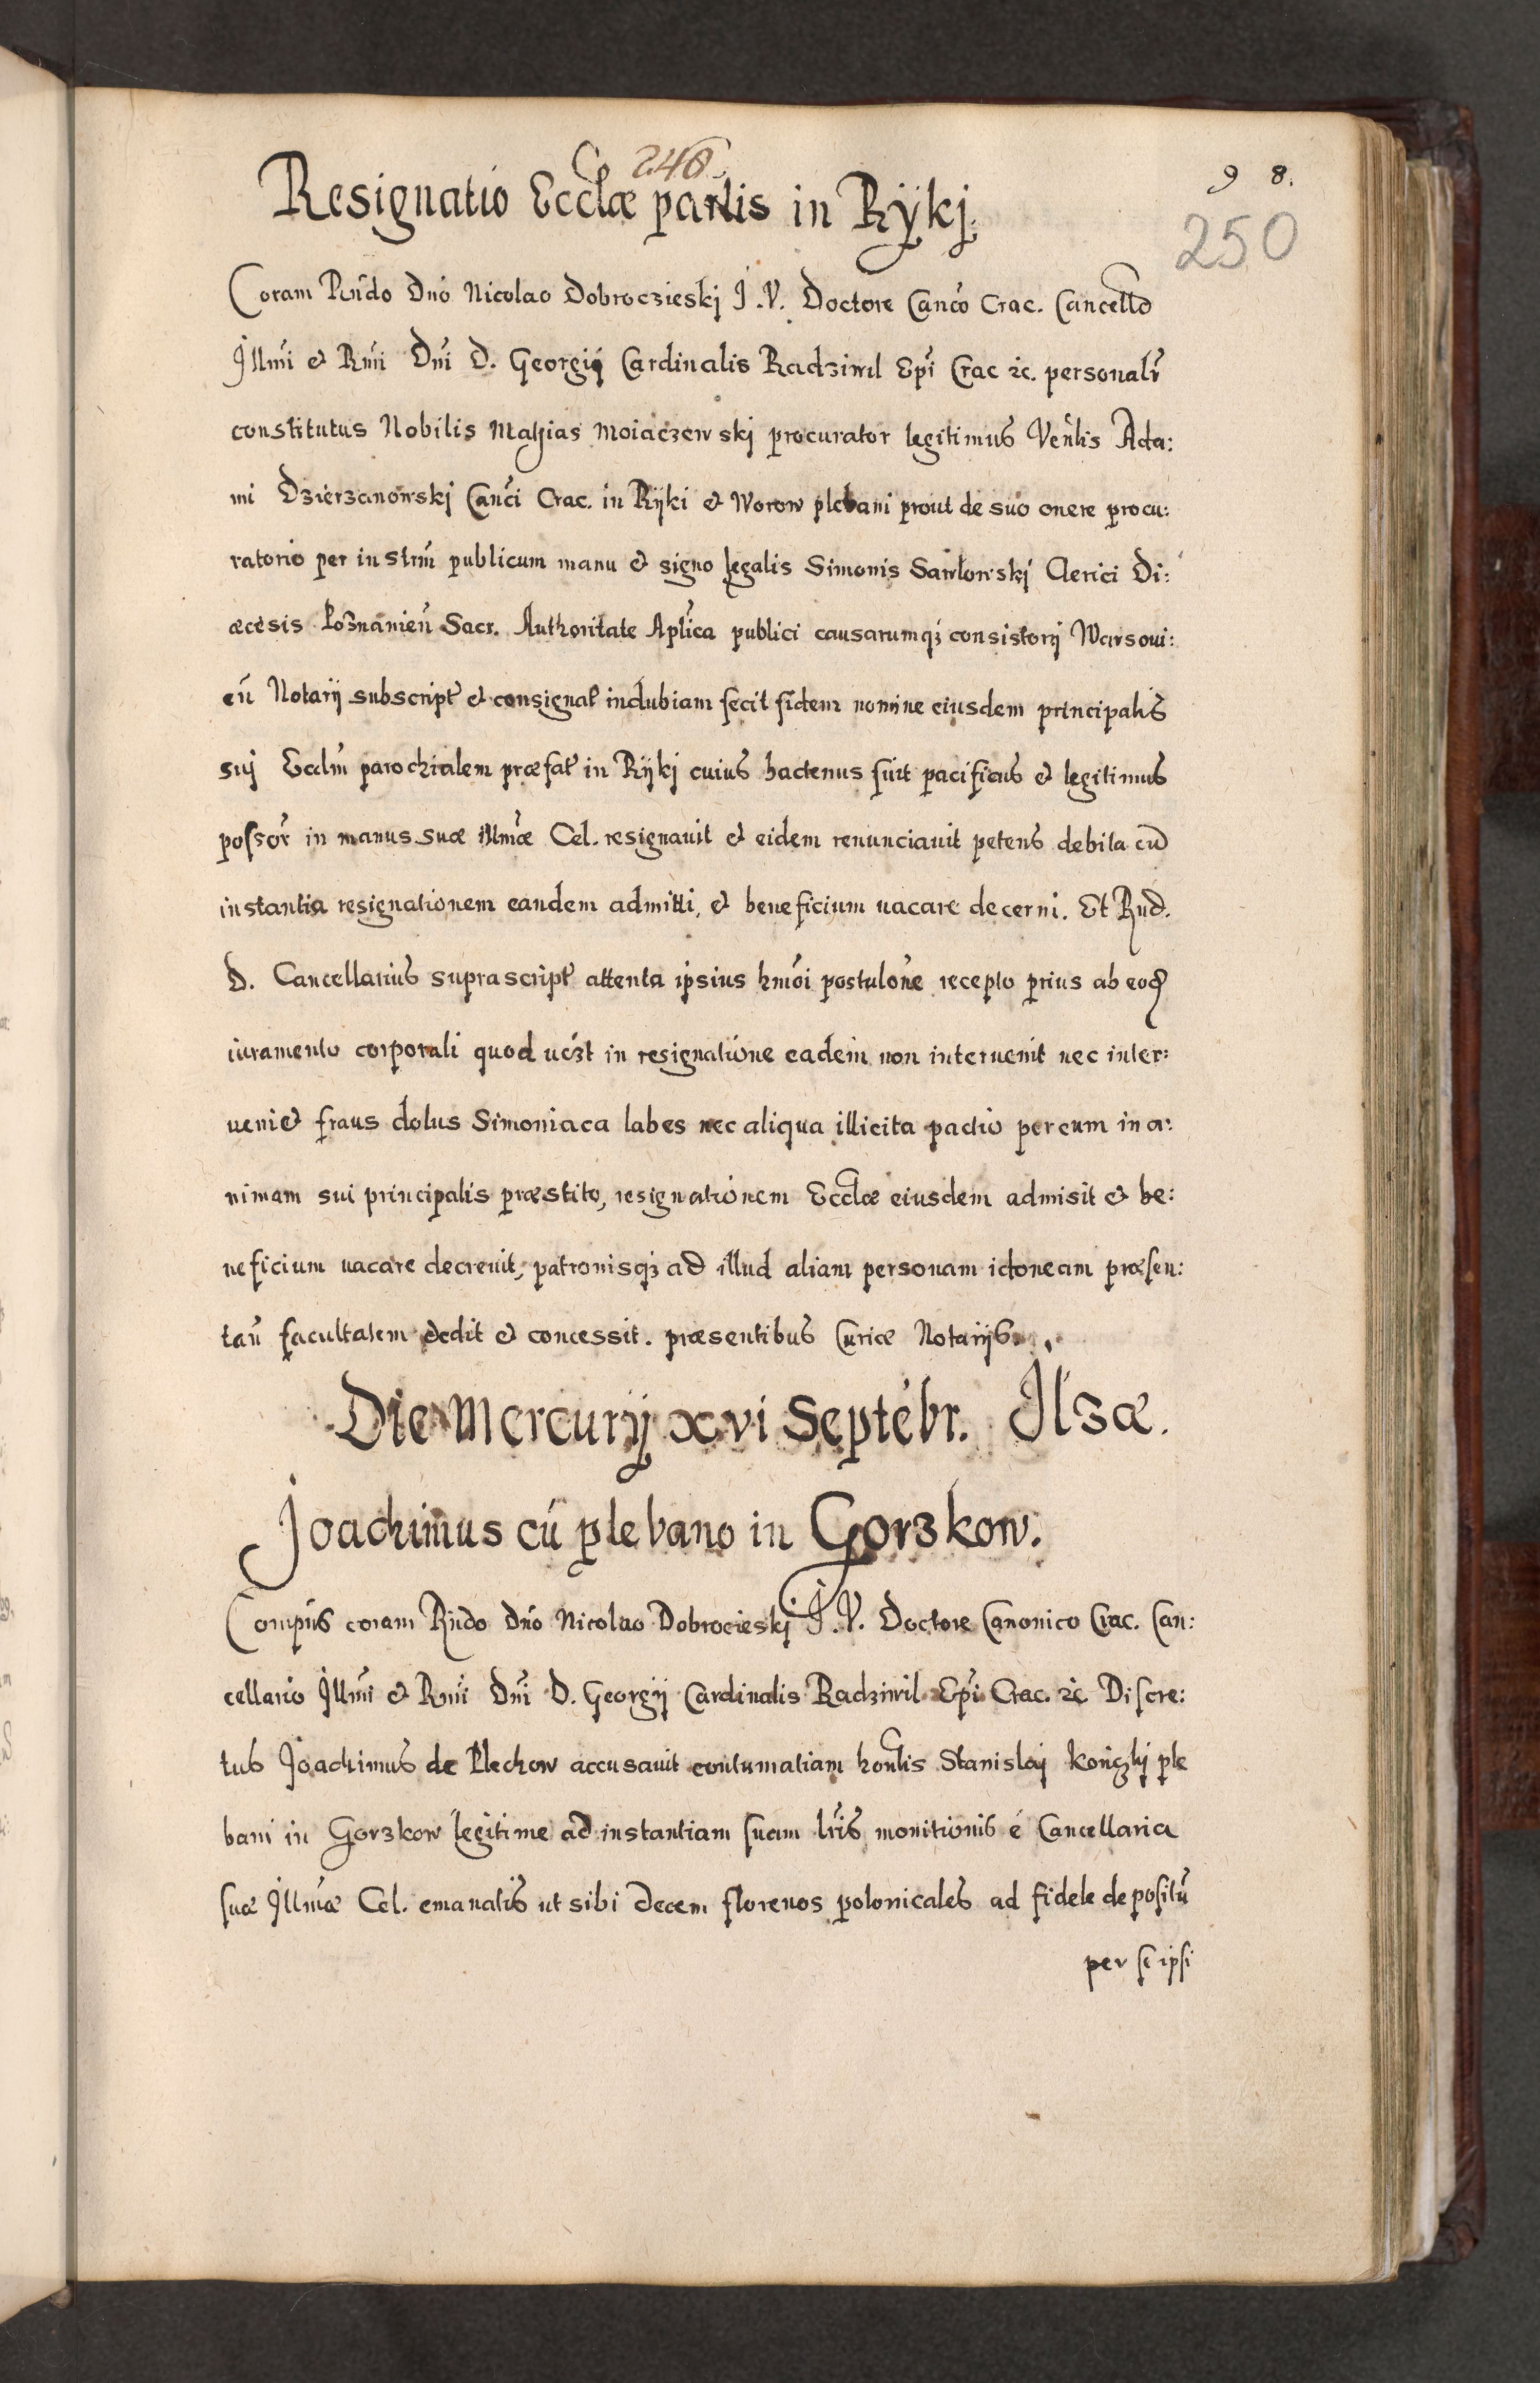 248
98.
250
Resignatio Ecclæ parlis in Rÿkj.
Coram Rndo Dno Nicolao Dobroczieskj J. V. Doctore Canco Crac. Cancello
Illmi et Rmi Dni D. Georgij Cardinalis Radziwil Epi Crac &c. personalr
constitutus Nobilis Mathias Moiaczewskj procurator legitimus Venlis Ada:
mi Dzierzanowskj Canci Crac. in Rÿki et Worow plebani prout de suo onere procu:
ratorio per instrm publicum manu et signo legalis Simonis Sawlowskj Clerici Di:
æcesis Poznanien Sacr. Authoritate Aplica publici causarumq consistorij Warsoui:
en Notarij subscript et consignat indubiam fecit fidem nomine eiusdem principalis
sui Ecclm parochialem præfat in Rÿkj cuius hactenus fuit pacificus et legitimus
possor in manus suæ Illmæ Cel. resignauit et eidem renunciauit petens debita cu
instantia resignationem eandem admitti, et beneficium uacare decerni. Et Rnd.
D. Cancellarius suprascript attenta ipsius hmoi postulone recepto prius ab eod
iuramento corporali quod uczt in resignatione eadem non interuenit nec inter:
ueniet fraus dolus Simoniaca labes nec aliqua illicita pactio per eum in a:
nimam sui principalis præstito, resignationem Ecclæ eiusdem admisit et be:
neficium uacare decreuit, patronisq ad illud aliam personam idoneam præsen:
tan facultatem dedit et concessit. præsentibus Curiæ Notarijs.
Die Mercurij xvi Septebr. Ilzæ.
Joachimus cu plebano in Gorzkow.
Compns coram Rndo Dno Nicolao Dobrocieskj J. V. Doctore Canonico Crac. Can:
cellario Illmi et Rmi Dni D. Georgij Cardinalis Radziwil Epi Crac. &c Discre:
tus Joachimus de Plechow accusauit contumatiam honlis Stanislaj ple
bani in Gorzkow legitime ad instantiam suam lris monitionis é Cancellaria
suæ Illmæ Cel. emanatis ut sibi decem florenos polonicales ad fidele depositu
per se ipsi